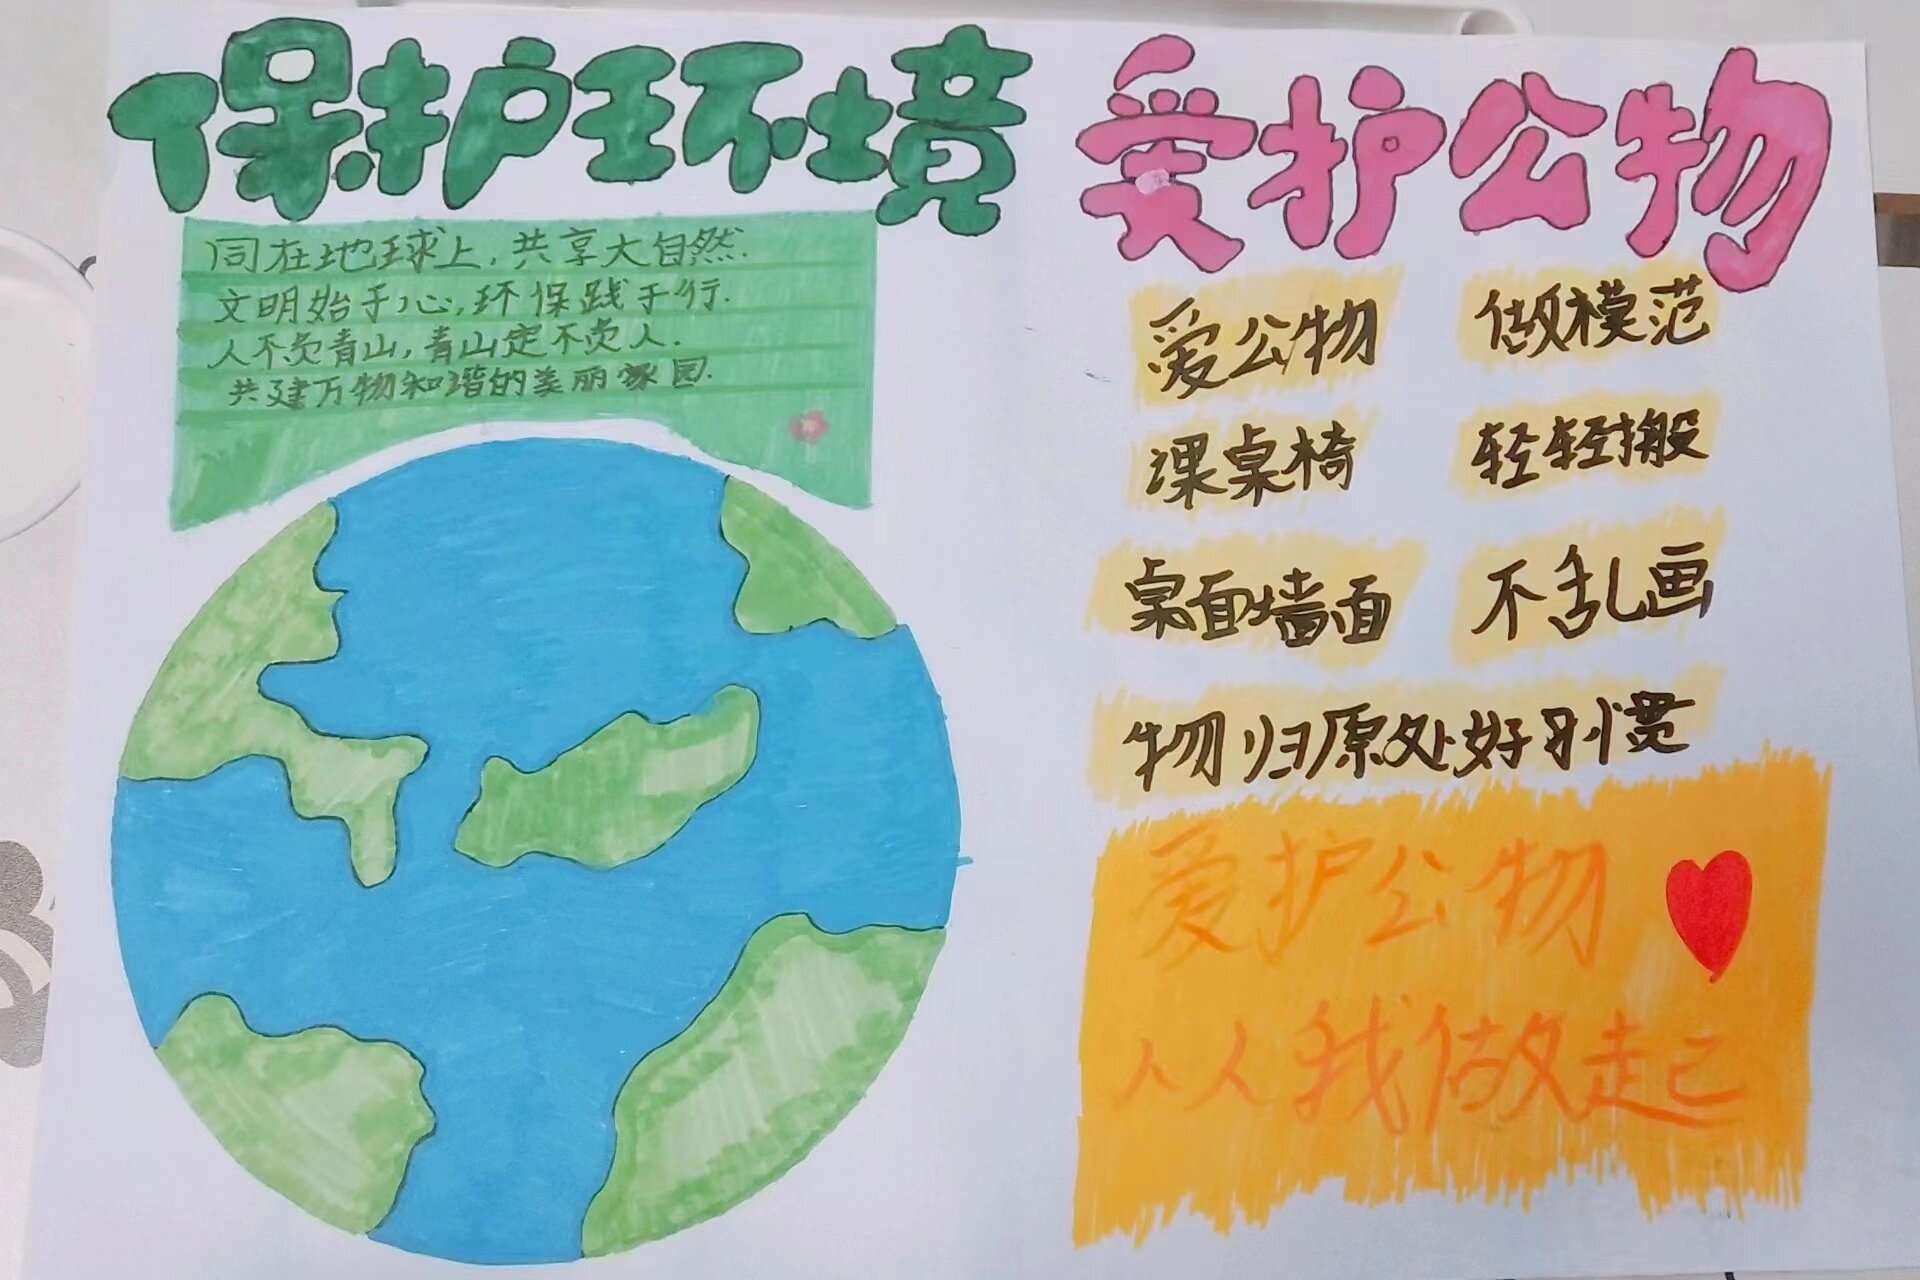 保护环境
同在地球上,共享大自然.
文明始于心,环保践于行.
人不负青山,青山定不负人.
共建万物和谐的美丽家园.
爱护公物
爱公物 做模范
课桌椅 轻轻搬
桌面墙面 不乱画
物归原处好习惯
爱护公物
从从我做起